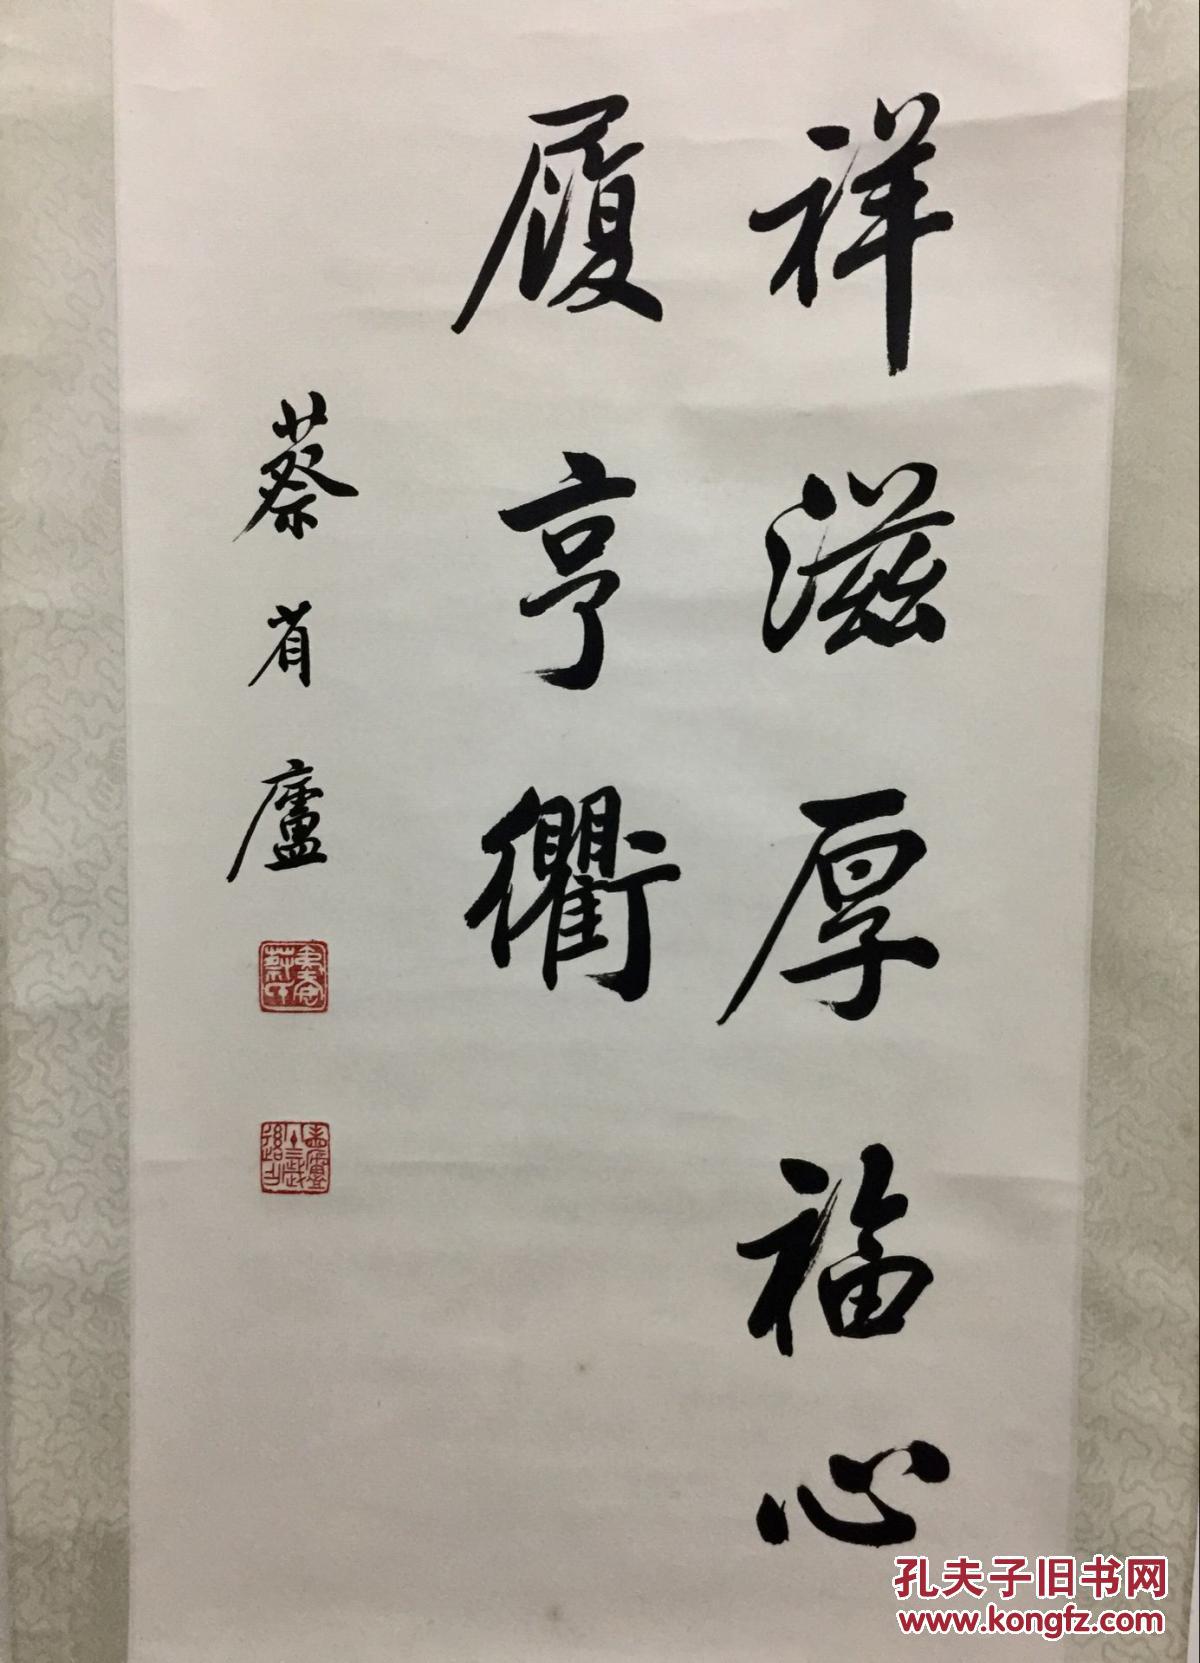 祥滋厚福心
履亨衢
蔡省廬
孔夫子旧书网
www.kongfz.com